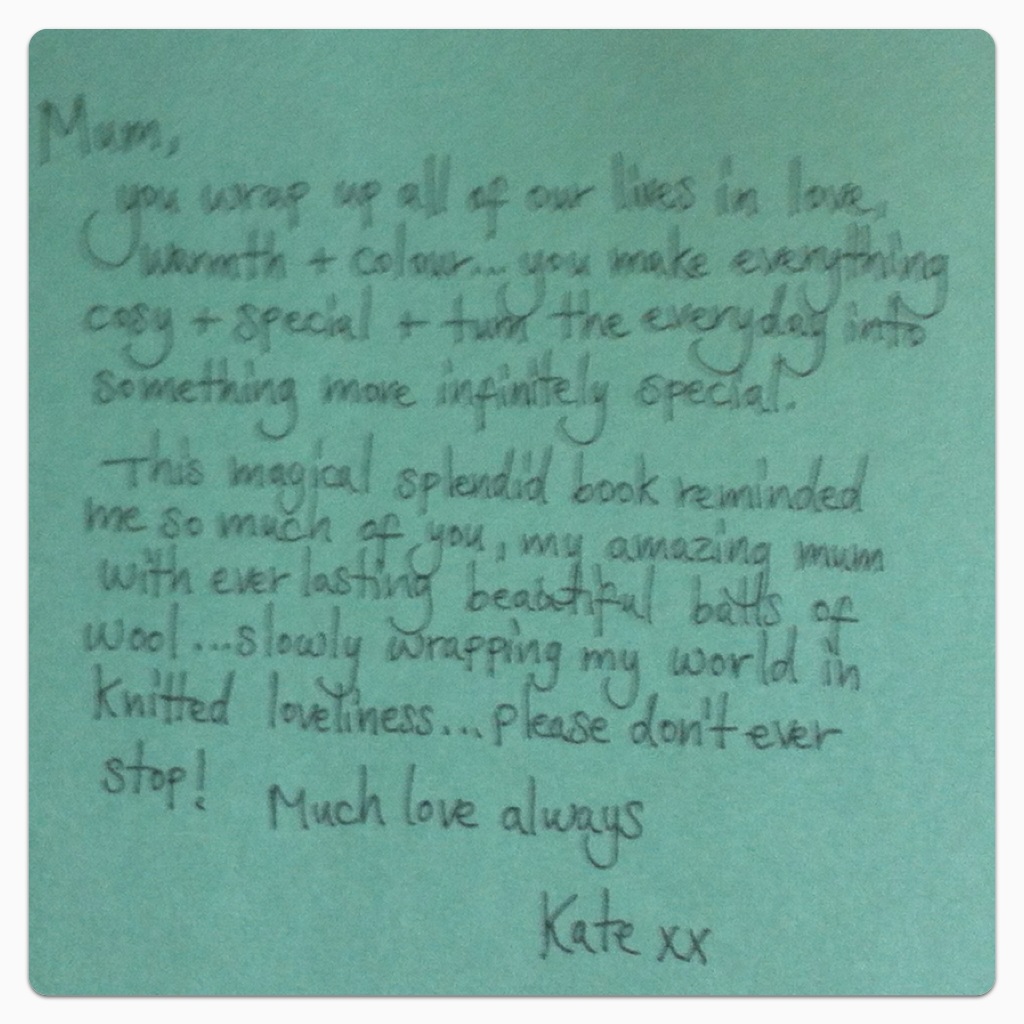 Mum,
you wrap up all of our lives in love,
warmth + colour... you make everything
cosy + special + turn the everyday into
something more infinitely special.
This magical splendid book reminded
me so much of you, my amazing mum
with ever lasting beautiful balls of
wool...slowly wrapping my world in
knitted loveliness...please don't ever
stop!
Much love always
Kate xx